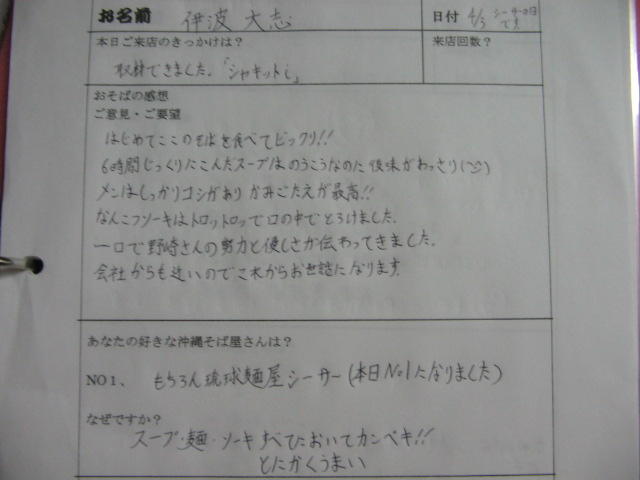 お名前 伊波 大志
日付 4/3 シーサーの日です
本日ご来店のきっかけは？
来店回数？
取材できました。「シャキットi」
おそばの感想
ご意見・ご要望
はじめてここのそばを食べてビックリ!!
6時間じっくりにこんだスープはのうこうなのに後味がわっさり(ツ)
メンはしっかりコシがあり かみごたえが最高!!
なんこつソーキはトロットロッで口の中でとろけました。
一口で野崎さんの努力と優しさが伝わってきました。
会社からも近いのでこれからお世話になります。
あなたの好きな沖縄そば屋さんは？
NO１、 もちろん琉球麺屋シーサー(本日No1になりました)
なぜですか？
スープ・麺・ソーキすべにおいてカンペキ!!
とにかくうまい